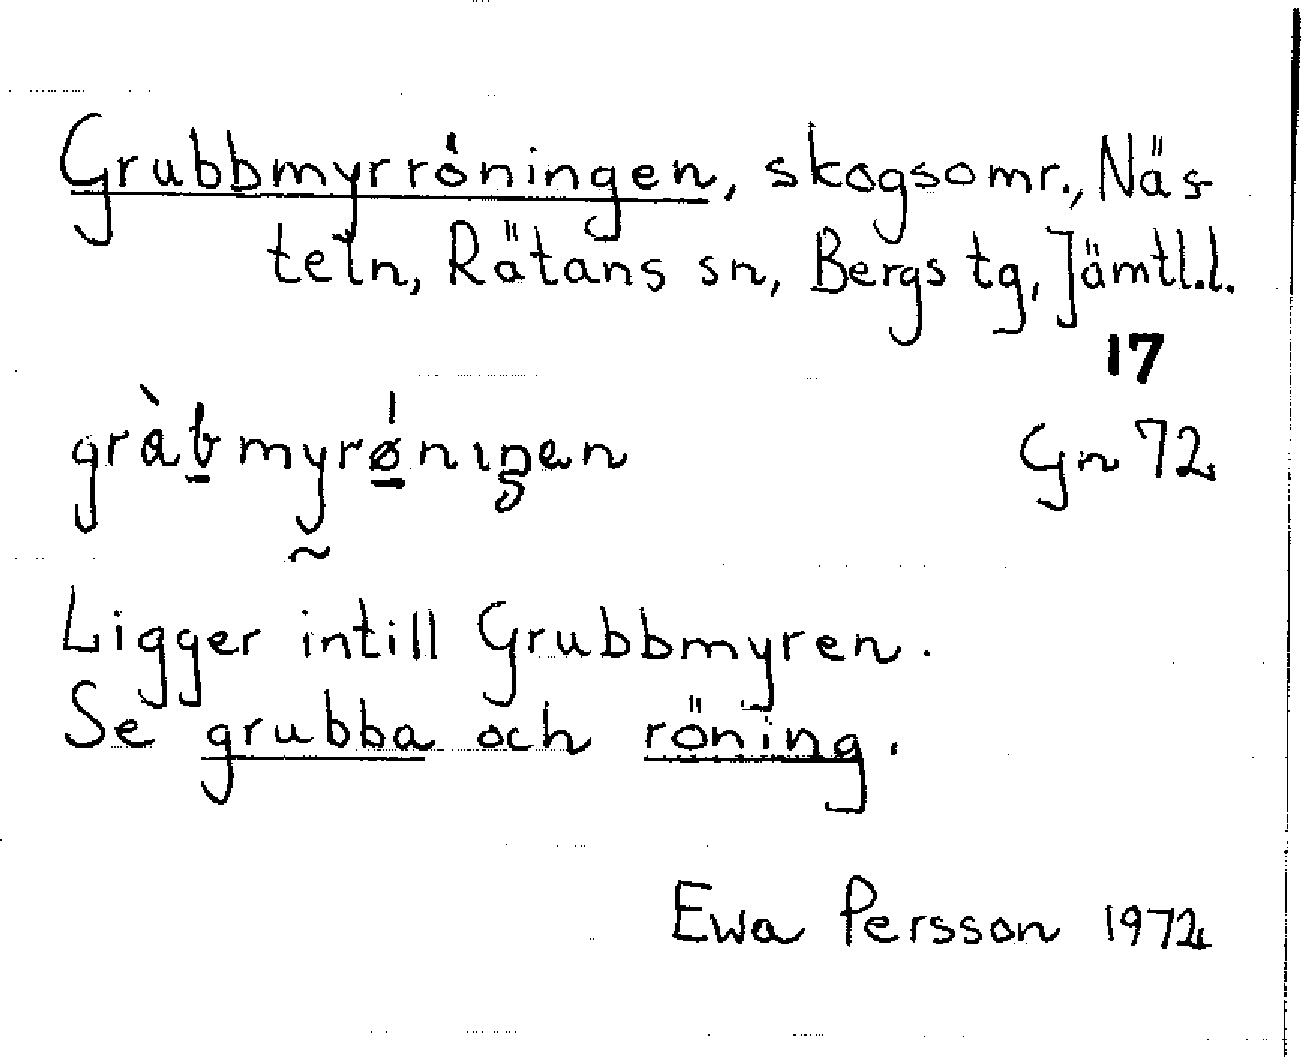 Grubbmyrröningen, skogsomr., Näs-
teln, Rätans sn, Bergs tg, Jämtl.l.
17
gràb̲myrǿ̲nıŋen Gn 72
Ligger intill Grubbmyren.
Se grubba och röning.
Ewa Persson 1972